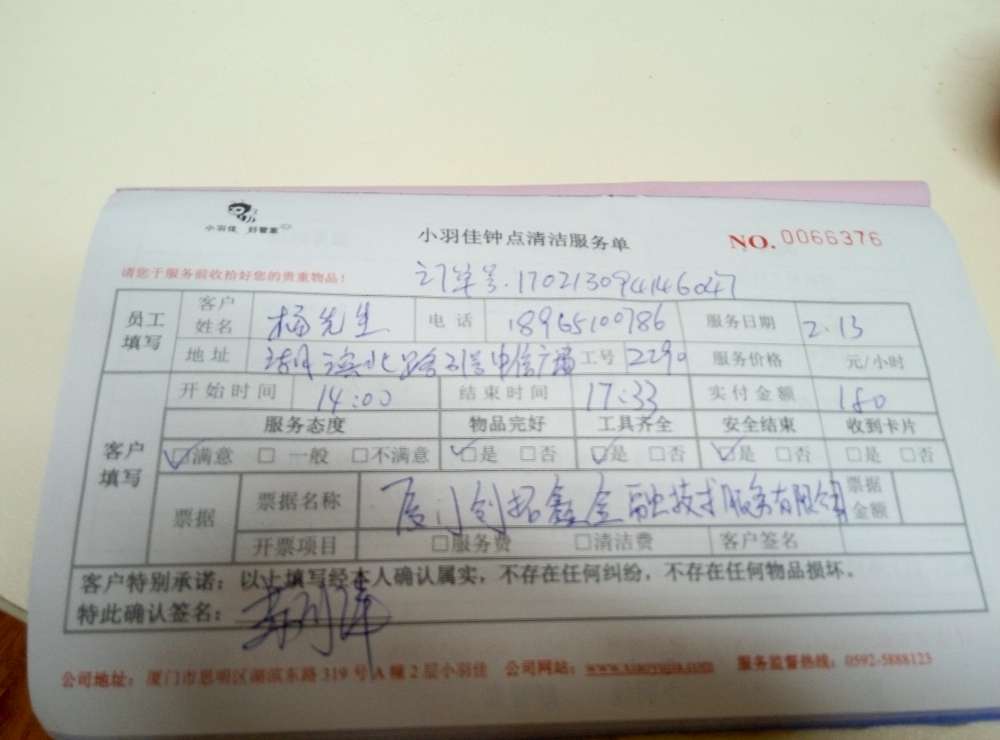 小羽佳 好管家
小羽佳钟点清洁服务单
NO. 0066376
请您于服务前收拾好您的贵重物品！
订单号.170213094146047
员工填写 客户姓名 杨先生 电话 18965100786 服务日期 2.13
地址 北路 电信广场 工号 2290 服务价格 元/小时
客户填写 开始时间 14:00 结束时间 17:33 实付金额 180
服务态度 物品完好 工具齐全 安全结束 收到卡片
☑满意 □ 一般 □不满意 ☑是 □否 ☑是 □否 ☑是 □否 □是 □否
票据 票据名称 厦门创拓鑫金融技术服务有限公司 票据金额
开票项目 □服务费 □清洁费 客户签名
客户特别承诺：以上填写经本人确认属实，不存在任何纠纷，不存在任何物品损坏。
特此确认签名：
公司地址：厦门市思明区湖滨东路319号A幢2层小羽佳 公司网站：www.xiaoyujia.com 服务监督热线：0592-5888123